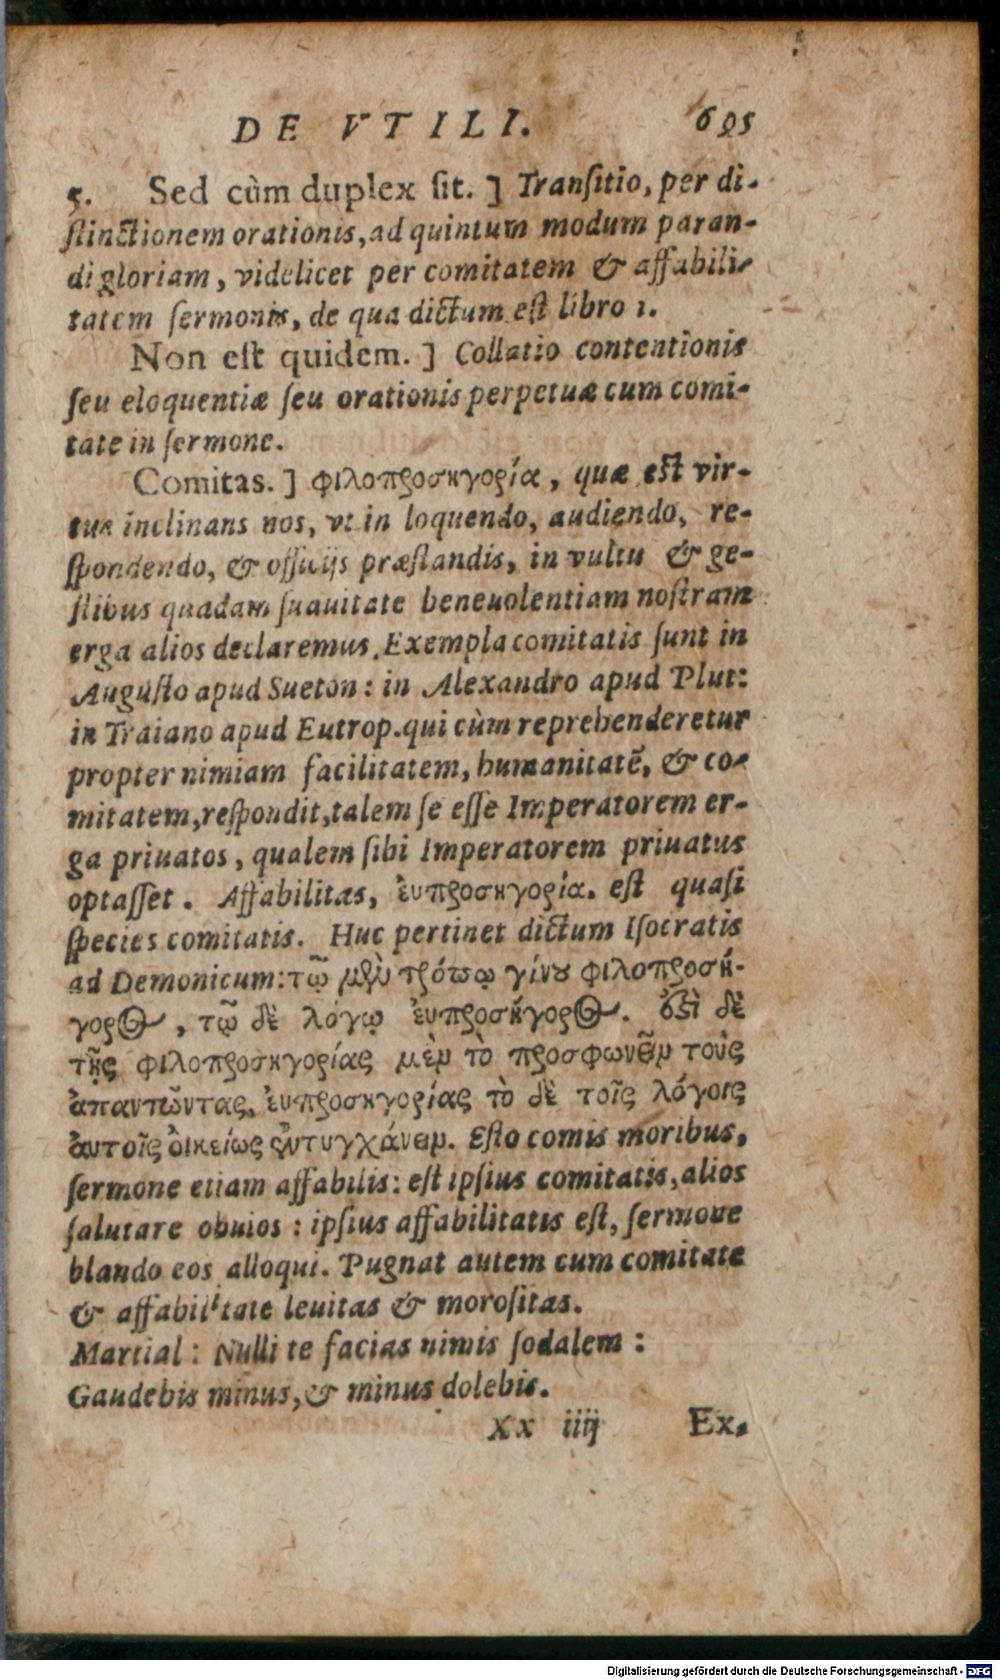 DE VTILI. 695
5. Sed cùm duplex sit. ] Transitio, per di-
stinctionem orationis, ad quintum modum paran-
di gloriam, videlicet per comitatem & affabili-
tatem sermonis, de qua dictum est libro 1.
Non est quidem. ] Collatio contentionis
seu eloquentiæ seu orationis perpetuæ cum comi-
tate in sermone.
Comitas. ] φιλοπροσηγορία, quæ est vir-
tus inclinans nos, vt in loquendo, audiendo, re-
spondendo, & officijs præstandis, in vultu & ge-
stibus quadam suauitate beneuolentiam nostram
erga alios declaremus. Exempla comitatis sunt in
Augusto apud Sueton: in Alexandro apud Plut:
in Traiano apud Eutrop. qui cùm reprehenderetur
propter nimiam facilitatem, humanitatē, & co-
mitatem, respondit, talem se esse Imperatorem er-
ga priuatos, qualem sibi Imperatorem priuatus
optasset. Affabilitas, ἐυπροσηγορία. est quasi
species comitatis. Huc pertinet dictum Isocratis
ad Demonicum: τῷ μὲν τρόπῳ γίνου φιλοπροσή-
γορος, τῷ δὲ λόγῳ ἐυπροσήγορος. ἔστι δὲ
τῆς φιλοπροσηγορίας μὲν τὸ προσφωνεῖν τοὺς
ἀπαντῶντας, ἐυπροσηγορίας τὸ δὲ τοῖς λόγοις
ἀυτοῖς ὀικείως ἐντυγχάνειν. Esto comis moribus,
sermone etiam affabilis: est ipsius comitatis, alios
salutare obuios: ipsius affabilitatis est, sermone
blando eos alloqui. Pugnat autem cum comitate
& affabilitate leuitas & morositas.
Martial: Nulli te facias nimis sodalem:
Gaudebis minus, & minus dolebis.
Xx iiij Ex-
Digitalisierung gefördert durch die Deutsche Forschungsgemeinschaft - DFG